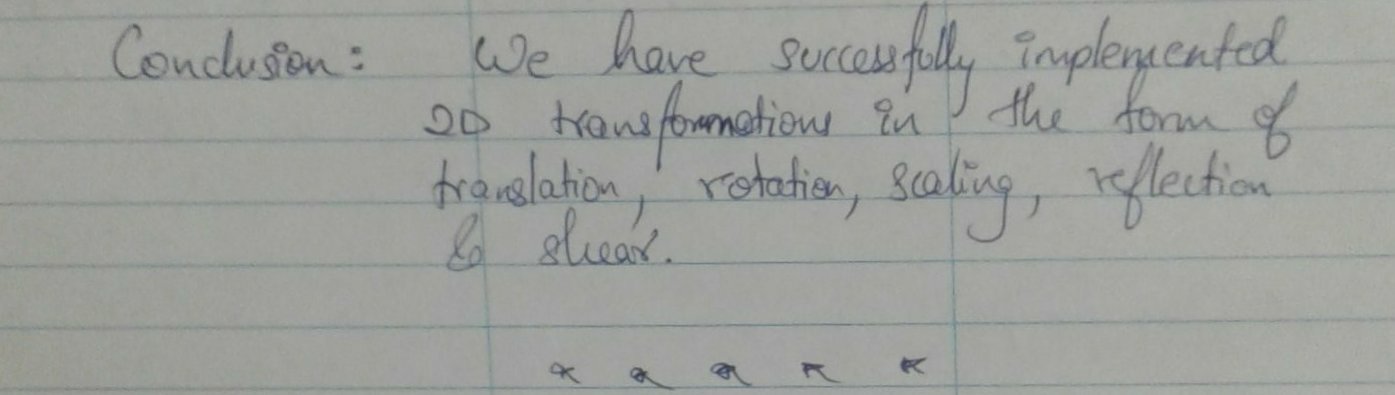 Conclusion: We have successfully implemented
2D transformations in the form of
translation, rotation, scaling, reflection
& shear.
* * * * *